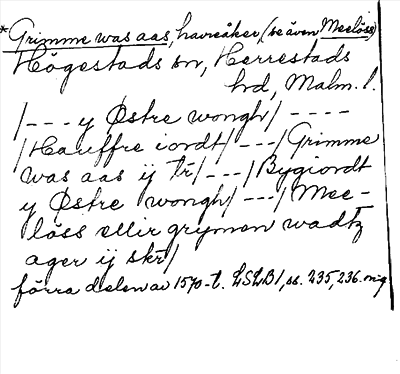 *Grimme was aas, havreåker (se även Meelöss)
Högestads sn, Herrestads
hd, Malm. l.
/--- y Østre wongh/ ----
/Hauffre iordt/ ---/ Grimme
was aas ij tr/ ---/ Bygiordt
y Østre wongh/ ---/ Mee-
löss ellir grymen wadtz
ager ij skr/
förra delen av 1570-t. LSLB1, ss. 235, 236. orig